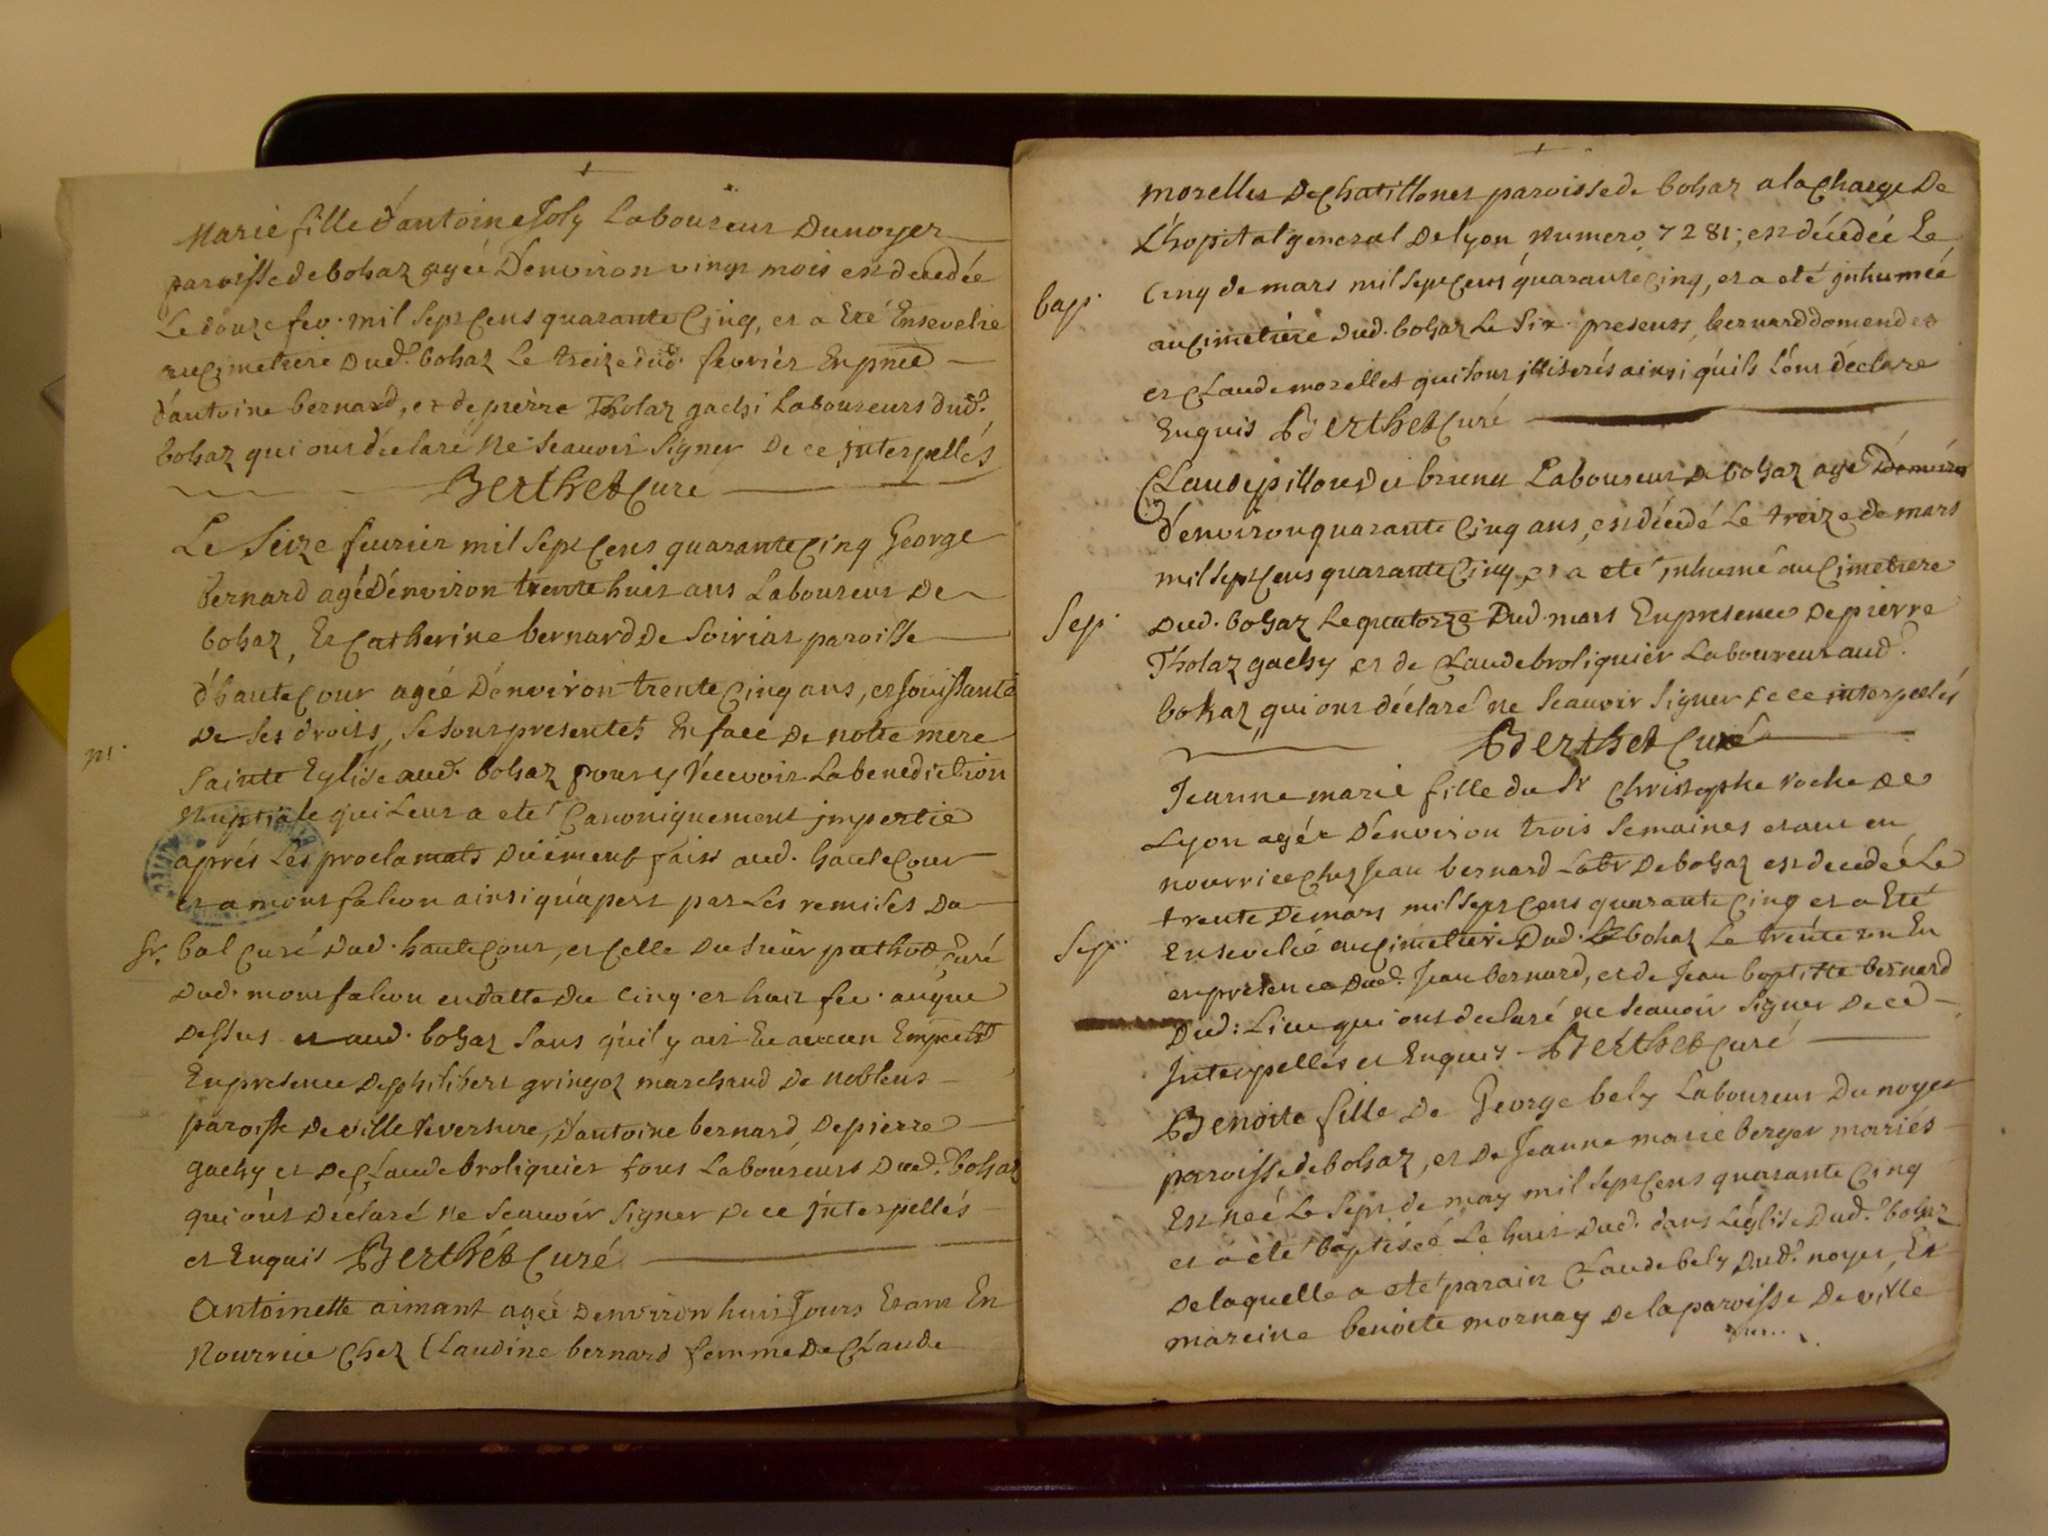 Marie fille d'antoine Joly Laboureur Dunoyer
paroisse de bohaz agée D'environ vingt mois est decedée
Le douze fev. mil sept Cens quarante Cinq, et a Eté Ensevelie
au Cimetiere dud. bohaz Le treize dud. fevrier En pnce
d'antoine bernard, et de pierre Tholaz gachi Laboureurs dud.
bohaz qui ont déclaré ne scauoir signer De ce interpellés
Berthet Curé
Le seize feurier mil sept Cens quarante Cinq George
bernard agé D'environ trente huit ans Laboureur De
bohaz, Et Catherine bernard De Soiriat paroisse
d'haute Cour agée D'environ trente Cinq ans, et Jouissante
De ses droits, se sont presentés En face De notre mere
m.
sainte Eglise aud. bohaz pour y Recevoir La benediction
nuptiale qui Leur a eté Canoniquement impertie
aprés Les proclamats Duement faits aud. haute Cour
et a montfalcon ainsi qu'apert par Les remises Du
sr. bal Curé dud. haute Cour, et Celle Du sieur puthod Curé
Dud. montfalcon en datte Du Cinq et huit fev. auque
Dessus et aud. bohaz sans qu'il y ait Eu aucun Empecht
En presence De philibert gringoz marchand De noblens
paroisse De ville Reversure, D'antoine bernard, De pierre
gachy et De Claude broliquier tous Laboureurs Dud. bohaz
qui ont Déclaré Ne scauoir signer De ce interpellés
et Enquis Berthet Curé
antoinette aimant agée Denviron huit Jours Etant En
Nourrice Chez Claudine bernard femme De Claude
morellet De Chatillonet paroisse de bohaz a la Charge De
L'hopital general De lyon, Numero 7281, est décedée Le
bap.
Cinq de mars mil sept Cens quarante Cinq, et a eté inhumée
au Cimetiere Dud. bohaz Le six presents bernard domend et
et Claude morellet qui sont illiterés ainsi qu'ils L'ont déclare
Enquis Berthet Curé
Claude pillon Dit brunet Laboureur De bohaz agé
d'environ quarante Cinq ans, est décedé Le treize de mars
mil sept Cens quarante Cinq, et a eté inhumé au Cimetiere
Sep.
Dud. bohaz Le quatorze Dud. mars En presence De pierre
Tholaz gachy et de Claude broliquier Laboureur aud.
bohaz qui ont déclaré ne scauoir signer De ce interpellés
Berthet Curé
Jeanne marie fille du Sr Christophe roche De
Lyon agée D'environ trois semaines etant en
nourrice Chez Jean bernard Labr De bohaz est decedée Le
trente De mars mil sept Cens quarante Cinq et a Eté
Sep.
Ensevelie au Cimetiere Dud. bohaz Le trente un En
en presence Dud. Jean bernard, et de Jean baptiste bernard
Dud. Lieu qui ont declaré ne scauoir signer De ce
Interpellés et Enquis Berthet Curé
Benoite fille De George bely Laboureur Du noyer
paroisse de bohaz, et De Jeanne marie berger mariés
Est née Le sept de may mil sept Cens quarante Cinq
et a eté baptisée Le huit Dud. dans L'églisè Dud. bohaz
De laquelle a eté parain Claude bely Dud. noyer, Et
mareine benoite mornay De la paroisse De ville